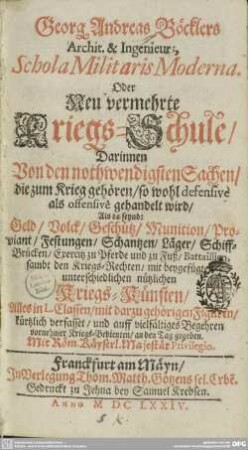 Georg Andreas Böcklers
Archit. & Ingenieur:,
Schola Militaris Moderna.
Oder
Neu vermehrte
Kriegs-Schule/
Darinnen
Von den nothwendigsten Sachen/
die zum Krieg gehören/ so wohl defensivè
als offensivè gehandelt wird/
Als da seynd:
Geld/ Volck/ Geschütz/ Munition/ Pro-
viant/ Festungen/ Schantzen/ Läger/ Schiff-
Brücken/ Exercitz zu Pferde und zu Fuß/
sambt den Kriegs-Rechten/ mit beygefügten
unterschiedlichen nützlichen
Kriegs-Künsten/
Alles in L. Classen/ mit darzu gehörigen Figuren/
kürtzlich verfasset/ und auff vielfältiges Begehren
vornehmer Kriegs-Bedienten/ an den Tag gegeben.
Mit Röm. Käyserl. Majestät Privilegio.
Franckfurt am Mäyn/
In Verlegung Thom. Matth. Götzens sel. Erbē.
Gedruckt zu Jehna bey Samuel Krebsen.
Anno M DC LXXIV.